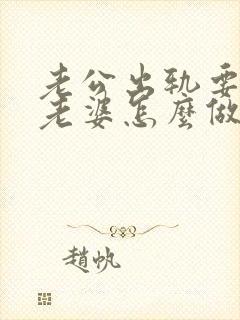 老公出軌要
老婆怎麼做
趙帆